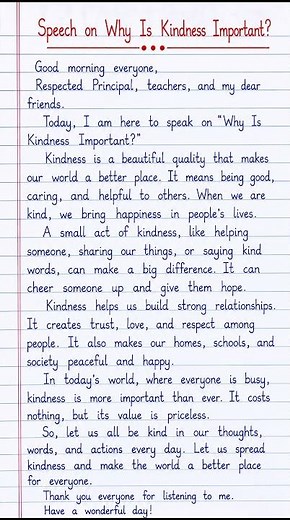 Speech on Why Is Kindness Important?
Good morning everyone,
Respected Principal, teachers, and my dear
friends.
Today, I am here to speak on "Why Is
Kindness Important?"
Kindness is a beautiful quality that makes
our world a better place. It means being good,
caring, and helpful to others. When we are
kind, we bring happiness in people's lives.
A small act of kindness, like helping
someone, sharing our things, or saying kind
words, can make a big difference. It can
cheer someone up and give them hope.
Kindness helps us build strong relationships.
It creates trust, love, and respect among
people. It also makes our homes, schools, and
society peaceful and happy.
In today's world, where everyone is busy,
kindness is more important than ever. It costs
nothing, but its value is priceless.
So, let us all be kind in our thoughts,
words, and actions every day. Let us spread
kindness and make the world a better place
for everyone.
Thank you everyone for listening to me.
Have a wonderful day!